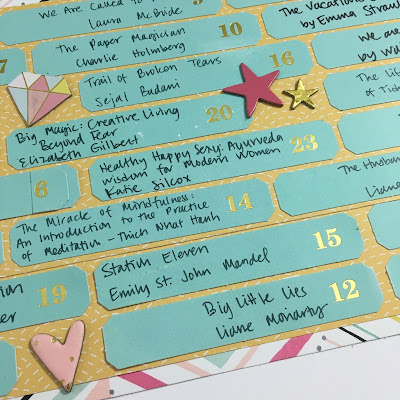 We Are Called to
Laura McBride
The Vacations
by Emma Strau
The Paper Magician
Charlie Holmberg
10
we are
by wa
7
Trail of Broken Tears
Sejal Badani
16
The Lif
of Tid
Big Magic: Creative Living
Beyond Fear
Elizabeth Gilbert
20
6
Healthy Happy Sexy: Ayurveda
wisdom for Modern Women
Katie Silcox
23
The Miracle of Mindfulness:
An Introduction to the Practice
of Meditation - Thich Nhat Hanh
14
The Husban
Liane
19
er
Station Eleven
Emily St. John Mandel
15
Big Little Lies
Liane Moriarty
12